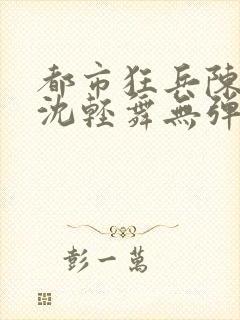 都市狂兵陳
沈輕舞無彈
彭一萬